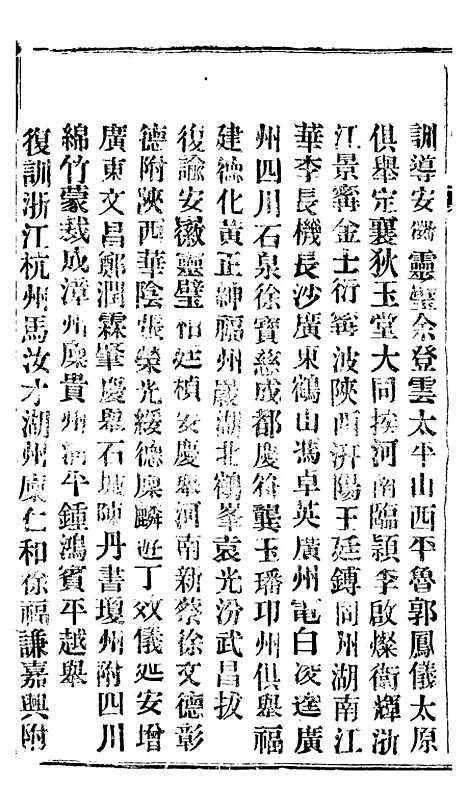 訓導安徽靈璧余登雲太平山西平魯郭鳳儀太原
俱舉定襄狄玉堂大同挨河南臨潁李啟燦衞輝浙
江景甯金士衍甯波陝西汧陽王廷鏄同州湖南江
華李長機長沙廣東鶴山馮卓英廣州電白凌達廣
州四川石泉徐寶慈成都慶符龔玉璠邛州俱舉福
建德化黃正紳福州歲湖北鶴峯袁光汾武昌拔
復諭安徽靈璧 廷楨安慶舉河南新蔡徐文德彰
德附陝西華陰張榮光綏德廩麟遊丁效儀延安增
廣東文昌鄭潤霖肇慶舉石城陳丹書瓊州附四川
綿竹蒙裁成漳州廩貴州 平鍾鴻賓平越舉
復訓浙江杭州馬汝才湖州廩仁和徐福謙嘉興附